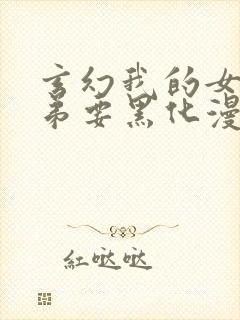 玄幻我的女
弟要黑化漫
紅哒哒